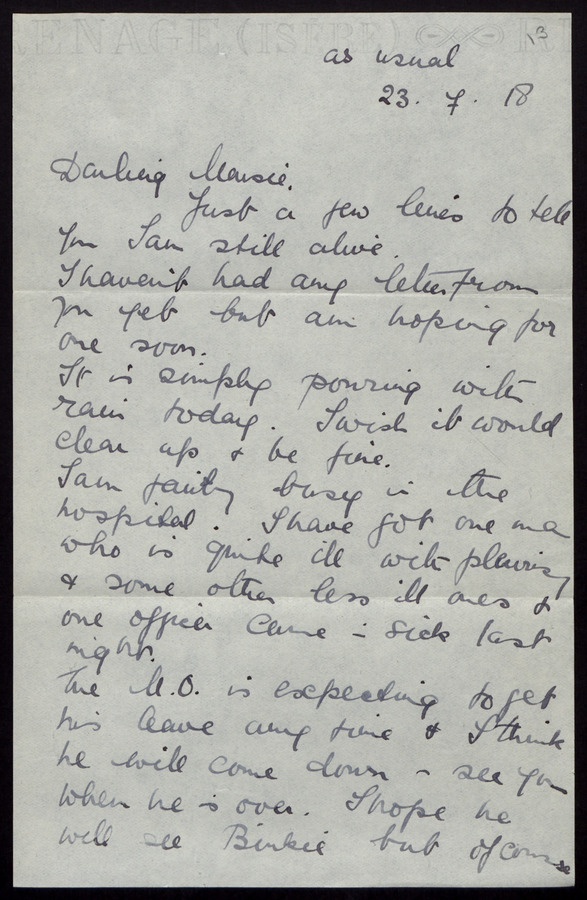 RENAGE (ISÈRE)
13
as usual
23. 7. 18
Darling Mousie.
Just a few lines to tell
you I am still alive.
I haven't had any letter from
you yet but am hoping for
one soon.
It is simply pouring with
rain today. I wish it would
clear up & be fine.
I am fairly busy in the
hospital. I have got one man
who is quite ill with pleurisy
& some other less ill ones &
one officer came in sick last
night.
The M.O. is expecting to get
his leave any time & I think
he will come down & see you
when he is over. I hope he
will see Binkie but of course